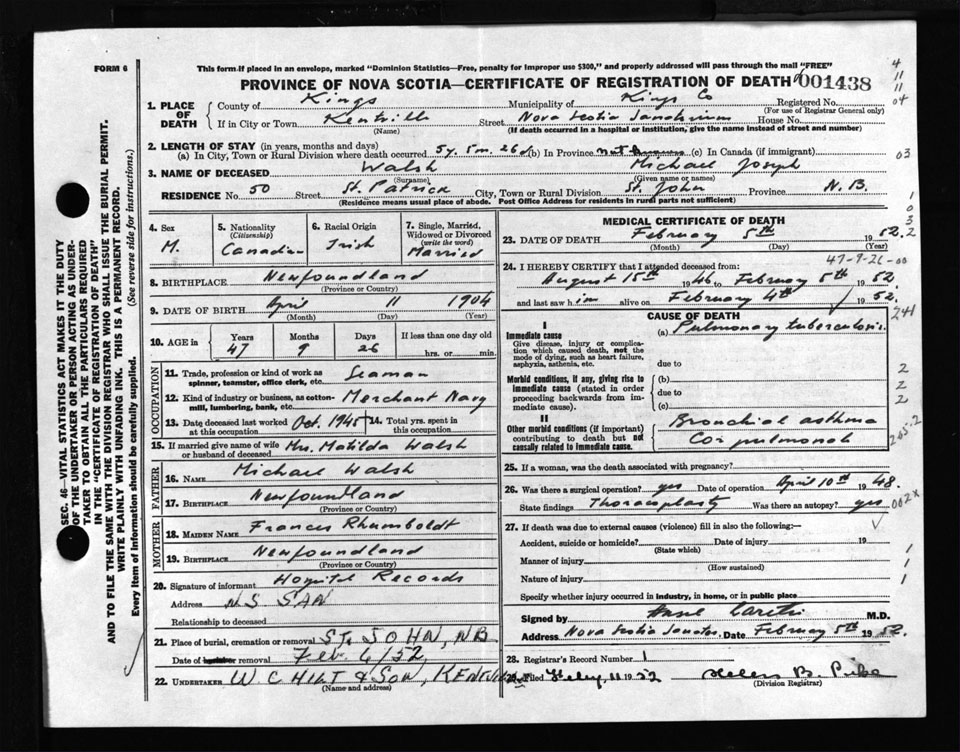 FORM 6
This form if placed in an envelope, marked "Dominion Statistics—Free, penalty for improper use $300," and properly addressed will pass through the mail "FREE"
PROVINCE OF NOVA SCOTIA—CERTIFICATE OF REGISTRATION OF DEATH 001438
4
11
11
04
03
1. PLACE OF DEATH
County of Kings Municipality of Kings Co Registered No.
(For use of Registrar General only)
If in City or Town Kentville Street Nova Scotia Sanatorium House No.
(Name) (If death occurred in a hospital or institution, give the name instead of street and number)
2. LENGTH OF STAY (in years, months and days)
(a) In City, Town or Rural Division where death occurred 5y. 5m. 26d (b) In Province (c) In Canada (if immigrant)
3. NAME OF DECEASED Walsh Michael Joseph
(Surname) (Given name or names)
RESIDENCE No. 50 Street St. Patrick City, Town or Rural Division St. John Province N.B.
(Residence means usual place of abode. Post Office Address for residents in rural parts not sufficient)
4. Sex M.
5. Nationality (Citizenship) Canadian
6. Racial Origin Irish
7. Single, Married, Widowed or Divorced (write the word) Married
8. BIRTHPLACE Newfoundland
(Province or Country)
9. DATE OF BIRTH April 11 1904
(Month) (Day) (Year)
10. AGE in Years 47 Months 9 Days 26 If less than one day old hrs. or min.
OCCUPATION
11. Trade, profession or kind of work as spinner, teamster, office clerk, etc. Seaman
12. Kind of industry or business, as cotton-mill, lumbering, bank, etc. Merchant Navy
13. Date deceased last worked at this occupation Oct. 1945
14. Total yrs. spent in this occupation
15. If married give name of wife or husband of deceased Mrs. Matilda Walsh
FATHER
16. NAME Michael Walsh
17. BIRTHPLACE Newfoundland
(Province or Country)
MOTHER
18. MAIDEN NAME Frances Rhumboldt
19. BIRTHPLACE Newfoundland
(Province or Country)
20. Signature of informant Hospital Records
Address N S SAN
Relationship to deceased
21. Place of burial, cremation or removal ST. JOHN, NB
Date of burial or removal Feb. 6/52,
22. UNDERTAKER W C HILT & SON, KENTVILLE
(Name and address)
MEDICAL CERTIFICATE OF DEATH
23. DATE OF DEATH February 5th 1952.
(Month) (Day) (Year)
47-9-26-00
24. I HEREBY CERTIFY that I attended deceased from:
August 15th 1946 to February 5th 1952
and last saw him alive on February 4th 1952.
CAUSE OF DEATH
I
Immediate cause
Give disease, injury or complication which caused death, not the mode of dying, such as heart failure, asphyxia, asthenia, etc.
(a) Pulmonary tuberculosis
due to
Morbid conditions, if any, giving rise to immediate cause (stated in order proceeding backwards from immediate cause).
(b)
due to
(c)
II
Other morbid conditions (if important) contributing to death but not causally related to immediate cause.
Bronchial asthma
Cor pulmonale
25. If a woman, was the death associated with pregnancy?
26. Was there a surgical operation? yes Date of operation April 10th 1948.
State findings Thoracoplasty Was there an autopsy? yes
27. If death was due to external causes (violence) fill in also the following:—
Accident, suicide or homicide? Date of injury 19
(State which)
Manner of injury
(How sustained)
Nature of injury
Specify whether injury occurred in industry, in home, or in public place
Signed by M.D.
Address Nova Scotia Sanator. Date February 5th 1952.
28. Registrar's Record Number 1
29. Filed Feby. 11 1952 Helen B.
(Division Registrar)
1
0
3
2
241
2
2
2
002x
1
1
SEC. 46—VITAL STATISTICS ACT MAKES IT THE DUTY
OF THE UNDERTAKER OR PERSON ACTING AS UNDER-
TAKER TO OBTAIN ALL THE PARTICULARS REQUIRED
IN THE "CERTIFICATE OF REGISTRATION OF DEATH"
AND TO FILE THE SAME WITH THE DIVISION REGISTRAR WHO SHALL ISSUE THE BURIAL PERMIT.
WRITE PLAINLY WITH UNFADING INK. THIS IS A PERMANENT RECORD.
Every item of information should be carefully supplied. (See reverse side for instructions.)